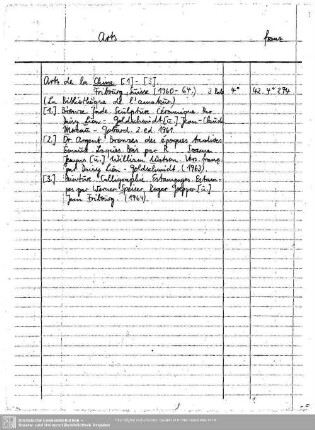 Arts franz
Arts de la Chine [1] - [3].
Fribourg, Suisse (1960-64.) 3 Bde 4° 42. 4° 274
(La Bibliothèque de l'amateur)
[1.] Bronze. Jade. Sculpture. Céramique. Von
Daisy Lion-Goldschmidt [u.] Jean-Claude
Moreau-Gobard. 2. ed. 1961.
[2.] Or. Argent. Bronzes des époques tardives.
Émaux. Laques. Bois par R
Jenyns [u.] William Watson. Vers. franç.
par Daisy Lion-Goldschmidt. (1963).
[3.] Peinture. Calligraphie. Estampages. Estam-
pes par Werner Speiser, Roger Goepper [u.]
Jean Fribourg. (1964).